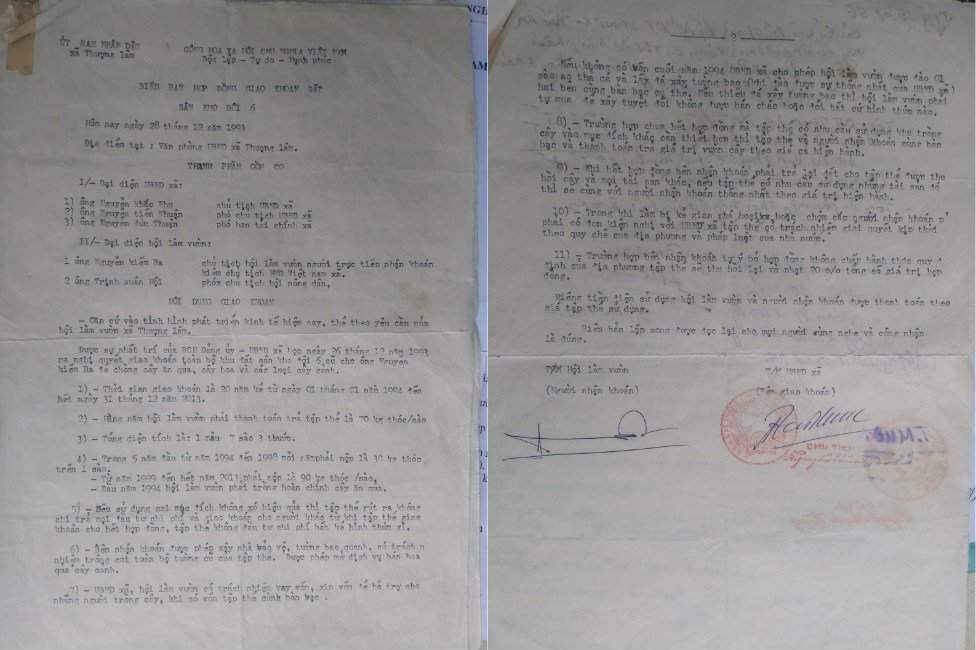 ỦY BAN NHÂN DÂN
xã Thượng lâm
CỘNG HÒA XÃ HỘI CHỦ NGHĨA VIỆT NAM
Độc lập - Tự do - Hạnh phúc
BIÊN BẢN HỢP ĐỒNG GIAO KHOÁN ĐẤT
SÂN KHO ĐỘI 6
Hôm nay ngày 28 tháng 12 năm 1993
Địa điểm tại : Văn phòng UBND xã Thượng lâm.
THÀNH PHẦN GỒM CÓ
I/- Đại diện UBND xã:
1) ông Nguyễn khắc chủ tịch UBND xã
2) ông Nguyễn tiến Nhuận phó chủ tịch UBND xã
3) ông Nguyễn đức Thuận phó ban tài chính xã
II/- Đại diện hội làm vườn:
1 ông Nguyễn kiểm Ba chủ tịch hội làm vườn người trực tiếp nhận khoán
kiêm chủ tịch Việt nam xã.
2 ông Trịnh xuân Hội phó chủ tịch hội nông dân.
NỘI DUNG GIAO KHOÁN
- Căn cứ vào tình hình phát triển kinh tế hiện nay, thể theo yêu cầu của
hội làm vườn xã Thượng lâm.
Được sự nhất trí của BCH Đảng ủy - UBND xã họp ngày 26 tháng 12 năm 1993
ra nghị quyết giao khoán toàn bộ khu tại sân kho đội 6 cũ cho ông Nguyễn
kiểm Ba để chồng cây ăn quả, cây hoa và các loại cây cảnh.
1) - Thời gian giao khoán là 20 năm kể từ ngày 01 tháng 01 năm 1994 đến
hết ngày 31 tháng 12 năm 2013.
2) - Hằng năm hội làm vườn phải thanh toán trả tập thể là 70 kg thóc/sào
3) - Tổng diện tích là: 1 mẫu 7 sào 3 thước.
4) - Trong 5 năm đầu từ năm 1994 đến 1998 mỗi năm phải nộp là kg thóc
trên 1 sào.
- Từ năm 1999 đến hết năm 2013 phải nộp là 90 kg thóc /sào.
- Sau năm 1994 hội làm vườn phải trồng hoàn chỉnh cây ăn quả.
5) - Nếu sử dụng sai mục đích không có hiệu quả thì tập thể rút ra không
chi trả mọi đầu tư chi phí và giao khoán cho người khác từ khi tập thể giao
khoán cho hết hợp đồng, tập thể không đầu tư chi phí bất kể hình thức gì.
6) - Bên nhận khoán được phép xây nhà bảo vệ, tường bao quanh, có trách
nhiệm trông coi toàn bộ tường cũ của tập thể. Được phép mở dịch vụ bán hoa
quả cây cảnh.
7) - UBND xã, hội làm vườn có trách nhiệm vay vốn, xin vốn để hỗ trợ cho
những người trồng cây, khi có vốn tập thể cùng bàn bạc .
Nếu không có vốn cuối năm 1994 UBND xã cho phép hội làm vườn được bán 01
sào ao tha cá và lấy để xây tường bao (khi bán được sự thống nhất của UBND xã)
hai bên cùng bàn bạc cụ thể. Nếu thiếu để xây tường bao thì hội làm vườn phải
tự mua để xây tuyệt đối không được bán chác hoặc đổi bất cứ hình thức nào.
8) - Trường hợp chưa hết hợp đồng mà tập thể có nhu cầu sử dụng khu trồng
cây vào mục đích khác cần thiết hơn thì tập thể và người nhận khoán cùng bàn
bạc và thanh toán trả giá trị vườn cây theo giá cả hiện hành.
9) - Khi hết hợp đồng bên nhận khoán phải trả lại đất cho tập thể được thu
hồi cây và mọi tài sản khác, nếu tập thể có nhu cầu sử dụng những tài sản đó
thì sẽ cùng với người nhận khoán thống nhất theo giá trị hiện hành.
10) - Trong khi làm bị kẻ gian phá hoại hoặc chộm cắp người nhận khoán
phải có đơn kiện nghị với UBND xã tập thể có trách nhiệm giải quyết kịp thời
theo quy chế của địa phương và pháp luật của nhà nước.
11) - Trường hợp bên nhận khoán tự ý bỏ hợp đồng không chấp hành theo quy
định của địa phương tập thể sẽ thu hồi lại và phạt 20 o/o tổng số giá trị hợp
đồng.
Riêng tiền điện sử dụng hội làm vườn và người nhận khoán được thanh toán theo
giá tập thể sử dụng.
Biên bản lập xong được đọc lại cho mọi người cùng nghe và công nhận
là đúng.
T/M Hội làm vườn
(Người nhận khoán)
T/M UBND xã
(Bên giao khoán)